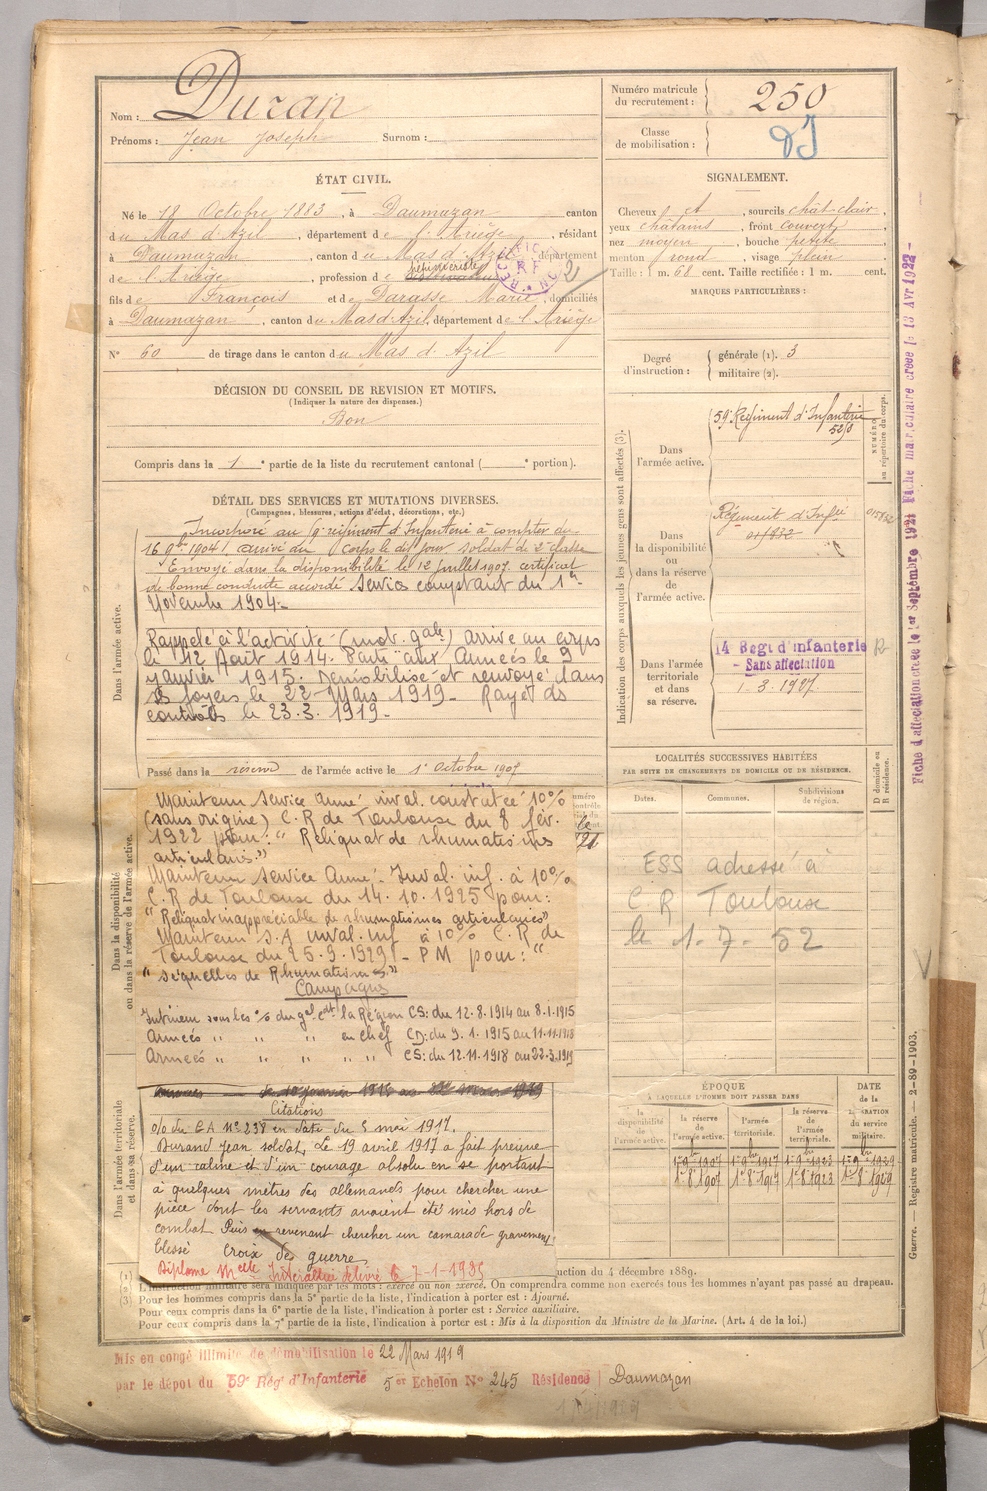 Nom : Duran
Prénoms : Jean Joseph Surnom :
Numéro matricule du recrutement : 250
Classe de mobilisation :
ÉTAT CIVIL.
Né le 18 Octobre 1883, à Daumazan canton
du Mas d'Azil, département de l'Ariège, résidant
à Daumazan, canton du Mas d'Azil département
de l'Ariège, profession de
fils de François et de Darasse Marie, domiciliés
à Daumazan, canton du Mas d'Azil, département de l'Ariège
N° 60 de tirage dans le canton du Mas d'Azil
SIGNALEMENT.
Cheveux et, sourcils chât-clair,
yeux châtains, front couvert,
nez moyen, bouche petite,
menton rond, visage plein
Taille : 1 m. 68 cent. Taille rectifiée : 1 m. cent.
MARQUES PARTICULIÈRES :
Degré d'instruction : générale (1). 3
militaire (2).
DÉCISION DU CONSEIL DE REVISION ET MOTIFS.
(Indiquer la nature des dispenses.)
Bon
Compris dans la 1e partie de la liste du recrutement cantonal ( e portion).
DÉTAIL DES SERVICES ET MUTATIONS DIVERSES.
(Campagnes, blessures, actions d'éclat, décorations, etc.)
Dans l'armée active.
Incorporé au 9e régiment d'Infanterie à compter du
16 9bre 1904, arrivé au corps le dit jour soldat de 2e classe
Envoyé dans la disponibilité le 12 juillet 1907. certificat
de bonne conduite accordé Service comptant du 1er
Novembre 1904.-
Rappelé à l'activité (mob. gale) arrivé au corps
le 12 Août 1914. Parti aux Armées le 9
janvier 1915. Démobilisé et renvoyé dans
ses foyers le 22 Mars 1919 - Rayé des
contrôles le 23.3.1919 -
Passé dans la réserve de l'armée active le 1er Octobre 1907
Dans la disponibilité ou dans la réserve de l'armée active.
Maintenu service armé inval. constatée 10%
(sans origine) C.R de Toulouse du 8 fév.
1922 pour : "Reliquat de rhumatismes
articulaires."
Maintenu service Armé - Inval. inf. à 10%
C.R de Toulouse du 14.10.1925 pour :
"Reliquat inappréciable de rhumatismes articulaires"
Maintenu S.A inval. inf à 10% C.R de
Toulouse du 25.9.1929 - PM pour : "
"séquelles de Rhumatismes"
Campagnes
Intérieur sous les o/o du gal Cdt la Région CS: du 12.8.1914 au 8.1.1915
Armées " " " en chef CD: du 9.1.1915 au 11.11.1918
Armées " " " " " CS: du 12.11.1918 au 22.3.1919
Dans l'armée territoriale et dans sa réserve.
Citations
o/o du CA N° 238 en date du 5 mai 1917.
Durand Jean soldat, Le 19 avril 1917 a fait preuve
d'un calme et d'un courage absolu en se portant
à quelques mètres des allemands pour chercher une
pièce dont les servants avaient été mis hors de
combat Puis en revenant chercher un camarade gravement
blessé Croix de guerre
Diplome Mlle Interalliée délivré le 7-1-1935
Indication des corps auxquels les jeunes gens sont affectés (3).
NUMÉRO au répertoire du corps.
Dans l'armée active.
59 Régiment d'Infanterie
5250
Dans la disponibilité ou dans la réserve de l'armée active.
Régiment d'Infie
Dans l'armée territoriale et dans sa réserve.
14 Regt d'infanterie
- Sans affectation
1.3.1927
LOCALITÉS SUCCESSIVES HABITÉES
PAR SUITE DE CHANGEMENTS DE DOMICILE OU DE RÉSIDENCE.
Dates. Communes. Subdivisions de région. D domicile ou R résidence.
ESS adressé à
C.R Toulouse
le 1-7-52
ÉPOQUE
À LAQUELLE L'HOMME DOIT PASSER DANS
DATE de la LIBÉRATION du service militaire.
la disponibilité de l'armée active. la réserve de l'armée active. l'armée territoriale. la réserve de l'armée territoriale.
1er 8 1907 1er 8 1917 1er 8 1923 1er 8 1929
uction du 4 décembre 1889.
(2) L'instruction militaire sera indiquée par les mots : exercé ou non exercé. On comprendra comme non exercés tous les hommes n'ayant pas passé au drapeau.
(3) Pour les hommes compris dans la 5e partie de la liste, l'indication à porter est : Ajourné.
Pour ceux compris dans la 6e partie de la liste, l'indication à porter est : Service auxiliaire.
Pour ceux compris dans la 7e partie de la liste, l'indication à porter est : Mis à la disposition du Ministre de la Marine. (Art. 4 de la loi.)
Mis en congé illimité de démobilisation le 22 Mars 1919
par le dépôt du 59e Rég d'Infanterie 5er Echelon N° 245 Résidence Daumazan
Guerre. — Registre matricule. — 2-89-1903.
Fiche d'affectation créée le 1er Septembre 1921 Fiche matriculaire créée le 13 Avr 1922 -